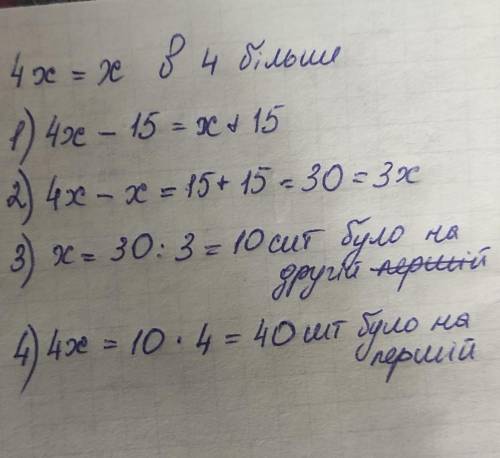 4x = x в 4 більше
1) 4x - 15 = x + 15
2) 4x - x = 15 + 15 = 30 = 3x
3) x = 30 : 3 = 10 шт було на
другій першій
4) 4x = 10 · 4 = 40 шт було на
першій